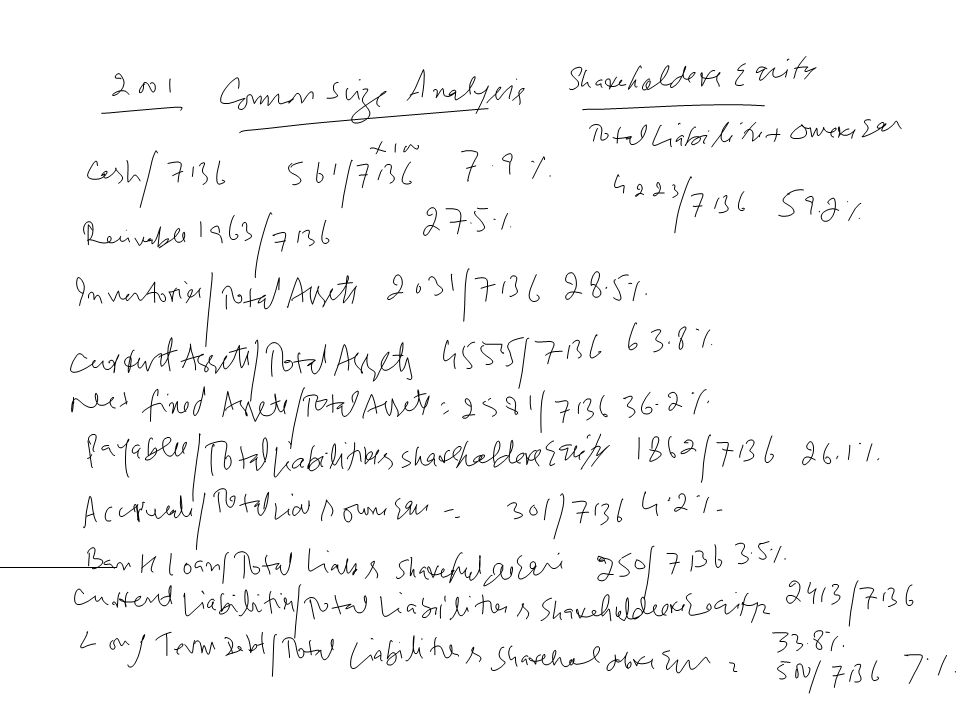 2001 Common Size Analysis
Shareholders Equity
Total Liabilities + Owners Equ
4223/7136 59.2%
Cash/7136 561/7136 x100 7.9%
Receivable 1963/7136 27.5%
Inventories/Total Assets 2031/7136 28.5%
Current Assets/Total Assets 4555/7136 63.8%
Net fixed Assets/Total Assets = 2581/7136 36.2%
Payables/Total Liabilities & Shareholders Equity 1862/7136 26.1%
Accruals/Total Liab & Owners Equ = 301/7136 4.2%
Bank Loan/Total Liab & Shareholders Equi 250/7136 3.5%
Current Liabilities/Total Liabilities & Shareholders Equity 2413/7136
33.8%
Long Term Debt/Total Liabilities & Shareholders Equ = 500/7136 7%